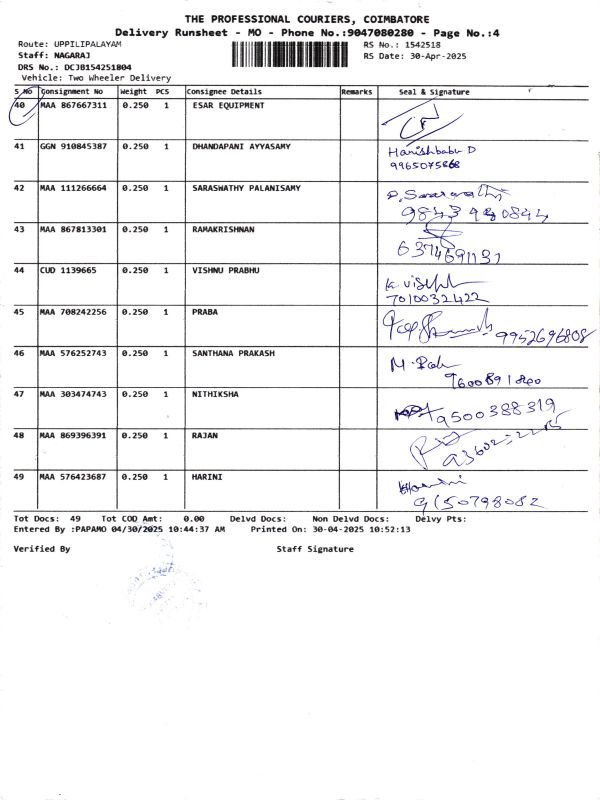 THE PROFESSIONAL COURIERS, COIMBATORE
Delivery Runsheet - MO - Phone No.:9047080280 - Page No.:4
Route: UPPILIPALAYAM RS No.: 1542518
Staff: NAGARAJ RS Date: 30-Apr-2025
DRS No.: DCJB154251804
Vehicle: Two Wheeler Delivery
S.NO Consignment No Weight PCS Consignee Details Remarks Seal & Signature
40 MAA 867667311 0.250 1 ESAR EQUIPMENT
41 GGN 910845387 0.250 1 DHANDAPANI AYYASAMY Harishbabu D
9965075868
42 MAA 111266664 0.250 1 SARASWATHY PALANISAMY P. Saraswathi
9843980844
43 MAA 867813301 0.250 1 RAMAKRISHNAN
6374691131
44 CUD 1139665 0.250 1 VISHNU PRABHU
7010032422
45 MAA 708242256 0.250 1 PRABA 9952696808
46 MAA 576252743 0.250 1 SANTHANA PRAKASH
9600891840
47 MAA 303474743 0.250 1 NITHIKSHA 9500388319
48 MAA 869396391 0.250 1 RAJAN
49 MAA 576423687 0.250 1 HARINI Harini
9150798082
Tot Docs: 49 Tot COD Amt: 0.00 Delvd Docs: Non Delvd Docs: Delvy Pts:
Entered By :PAPAMO 04/30/2025 10:44:37 AM Printed On: 30-04-2025 10:52:13
Verified By Staff Signature